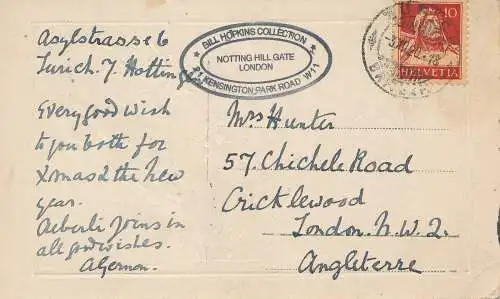 Asylstrasse 6
Zurich. 7. Hottingen
Every good wish
to you both for
Xmas & the new
year.
Aeberli joins in
all good wishes.
Algernon.
BILL HOPKINS COLLECTION
NOTTING HILL GATE
LONDON
KENSINGTON PARK ROAD W11
10
HELVETIA
Mrs Hunter
57. Chichele Road
Cricklewood
London. N.W.2.
Angleterre